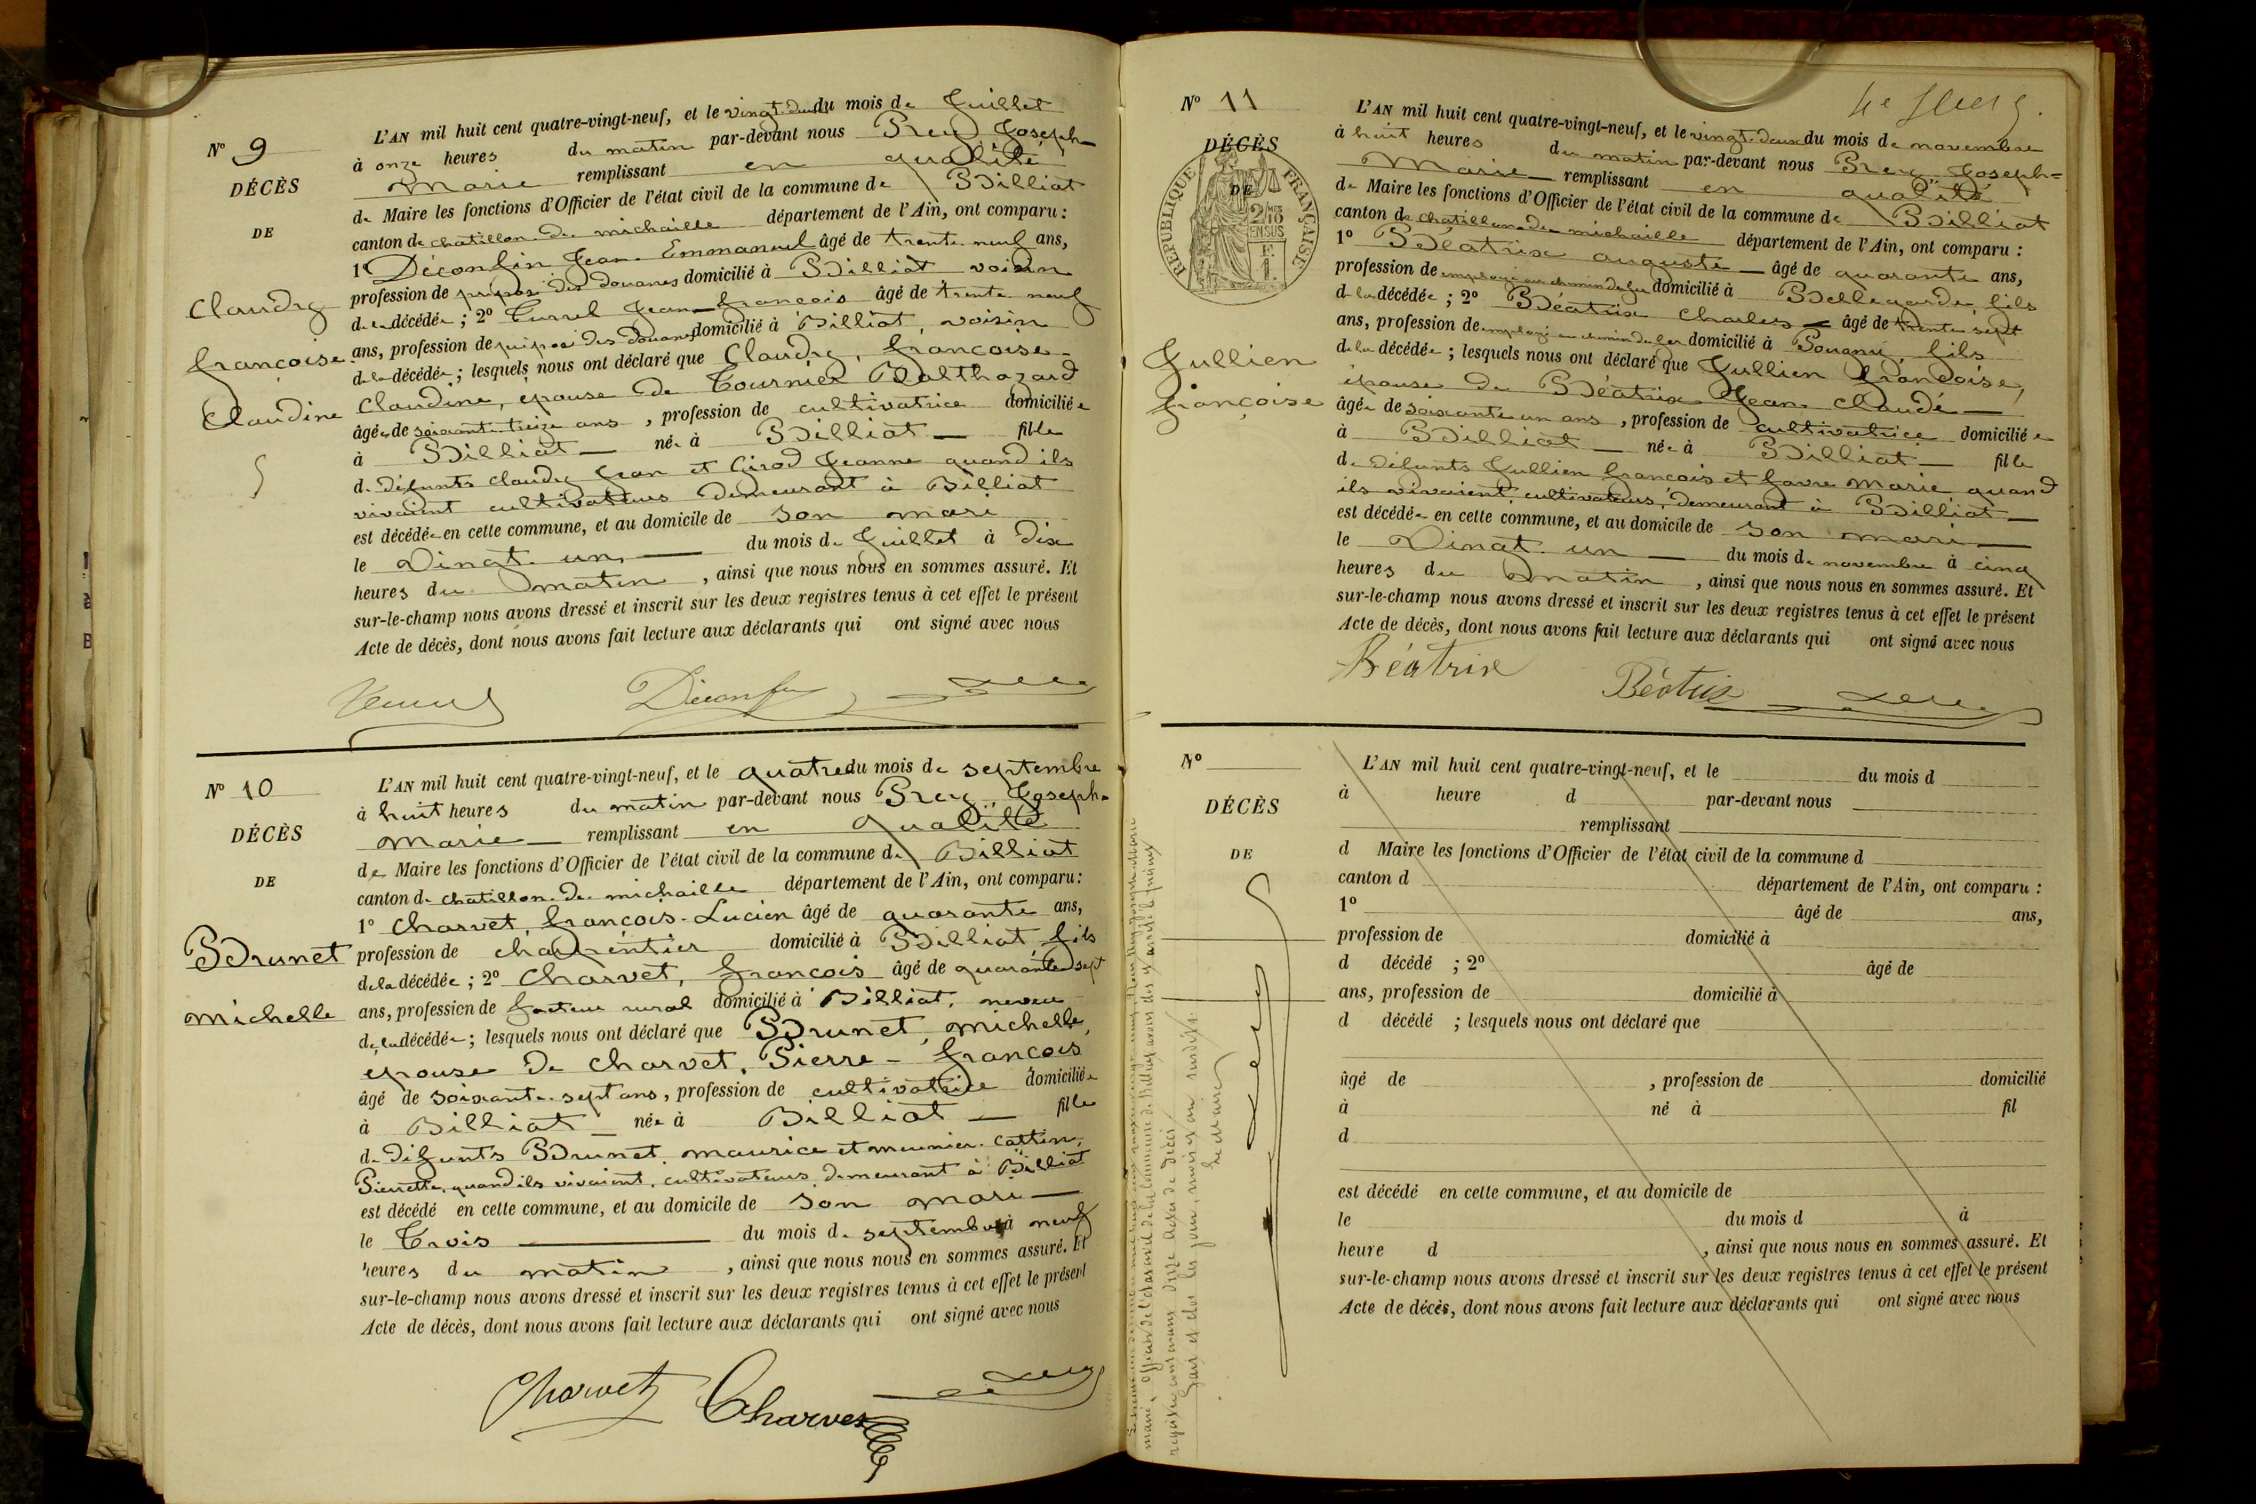 N° 9
DÉCÈS
DE
Claudy
françoise
Claudine
L'AN mil huit cent quatre-vingt-neuf, et le vingt-deux du mois de Juillet
à onze heures du matin par-devant nous Prey Joseph-
Marie remplissant en qualité
de Maire les fonctions d'Officier de l'état civil de la commune de Billiat
canton de chatillon de michaille département de l'Ain, ont comparu :
1° Déconfin Jean Emmanuel âgé de trente neuf ans,
profession de préposé des douanes domicilié à Billiat voisin
de la décédée ; 2° Turrel Jean françois âgé de trente neuf
ans, profession de préposé des douanes domicilié à Billiat, voisin
de la décédée ; lesquels nous ont déclaré que Claudy, françoise-
Claudine, épouse de Tournier Balthazard
âgée de soixante-treize ans, profession de cultivatrice domiciliée
à Billiat — née à Billiat — fille
de défunts Claudy Jean et Girod Jeanne quand ils
vivaient cultivateurs demeurant à Billiat
est décédée en cette commune, et au domicile de son mari
le Vingt-un — du mois de Juillet à dix
heures du matin, ainsi que nous nous en sommes assuré. Et
sur-le-champ nous avons dressé et inscrit sur les deux registres tenus à cet effet le présent
Acte de décès, dont nous avons fait lecture aux déclarants qui ont signé avec nous
Déconfin
N° 10
DÉCÈS
DE
Brunet
michelle
L'AN mil huit cent quatre-vingt-neuf, et le quatre du mois de septembre
à huit heures du matin par-devant nous Prey, Joseph-
Marie — remplissant en qualité
de Maire les fonctions d'Officier de l'état civil de la commune de Billiat
canton de chatillon de michaille département de l'Ain, ont comparu :
1° Charvet, françois-Lucien âgé de quarante ans,
profession de charpentier domicilié à Billiat fils
de la décédée ; 2° Charvet, françois âgé de quarante sept
ans, profession de facteur rural domicilié à Billiat, neveu
de la décédée ; lesquels nous ont déclaré que Brunet, michelle,
épouse de Charvet, Pierre - françois
âgé de soixante-sept ans, profession de cultivatrice domiciliée
à Billiat — née à Billiat — fille
de défunts Brunet, maurice et meunier-Cattin,
Pierrette, quand ils vivaient, cultivateurs, demeurant à Billiat
est décédé en cette commune, et au domicile de son mari —
le Trois — du mois de septembre à neuf
heures du matin, ainsi que nous nous en sommes assuré. Et
sur-le-champ nous avons dressé et inscrit sur les deux registres tenus à cet effet le présent
Acte de décès, dont nous avons fait lecture aux déclarants qui ont signé avec nous
Charvet Charvet
N° 11
DÉCÈS
DE
RÉPUBLIQUE FRANÇAISE
2/10mes EN SUS
Jullien
françoise
L'AN mil huit cent quatre-vingt-neuf, et le vingt-deux du mois de novembre
à huit heures du matin par-devant nous Prey Joseph-
Marie — remplissant en qualité
de Maire les fonctions d'Officier de l'état civil de la commune de Billiat
canton de chatillon de michaille département de l'Ain, ont comparu :
1° Béatrix auguste — âgé de quarante ans,
profession de employé au chemin de fer domicilié à Bellegarde, fils
de la décédée ; 2° Béatrix Charles — âgé de trente sept
ans, profession de employé au chemin de fer domicilié à fils
de la décédée ; lesquels nous ont déclaré que Jullien françoise,
épouse de Béatrix Jean Claude —
âgée de soixante un ans, profession de cultivatrice domiciliée
à Billiat — née à Billiat — fille
de défunts Jullien françois et favre Marie, quand
ils vivaient, cultivateurs, demeurant à Billiat —
est décédée en cette commune, et au domicile de son mari —
le Vingt-un — du mois de novembre à cinq
heures du matin, ainsi que nous nous en sommes assuré. Et
sur-le-champ nous avons dressé et inscrit sur les deux registres tenus à cet effet le présent
Acte de décès, dont nous avons fait lecture aux déclarants qui ont signé avec nous
Béatrix Béatrix
N°
DÉCÈS
DE
L'AN mil huit cent quatre-vingt-neuf, et le du mois d
à heure d par-devant nous
remplissant
d Maire les fonctions d'Officier de l'état civil de la commune d
canton d département de l'Ain, ont comparu :
1° âgé de ans,
profession de domicilié à
d décédé ; 2° âgé de
ans, profession de domicilié à
d décédé ; lesquels nous ont déclaré que
âgé de , profession de domicilié
à né à fil
d
est décédé en cette commune, et au domicile de
le du mois d à
heure d , ainsi que nous nous en sommes assuré. Et
sur-le-champ nous avons dressé et inscrit sur les deux registres tenus à cet effet le présent
Acte de décès, dont nous avons fait lecture aux déclarants qui ont signé avec nous